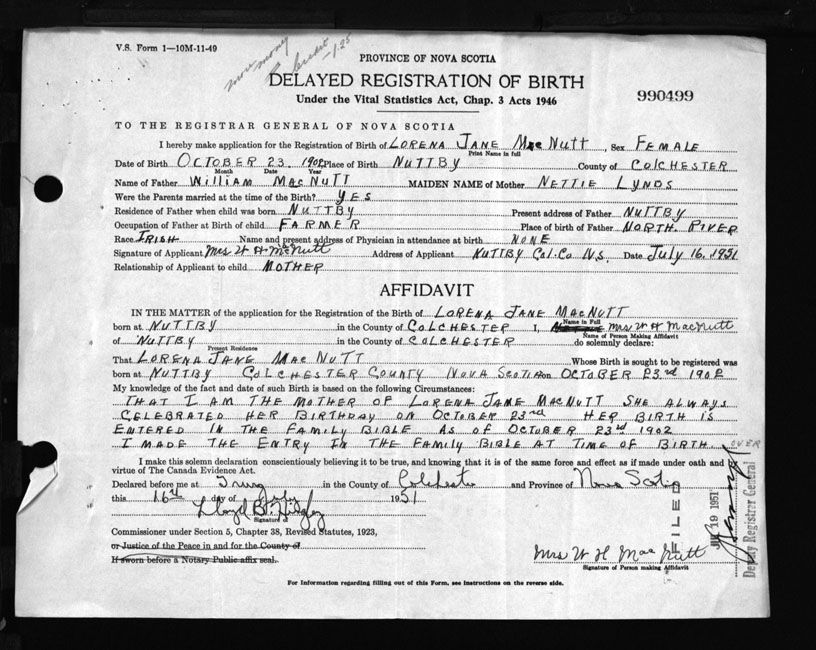 V.S. Form 1—10M-11-49
more money
credit -1.25
PROVINCE OF NOVA SCOTIA
DELAYED REGISTRATION OF BIRTH
Under the Vital Statistics Act, Chap. 3 Acts 1946
990499
TO THE REGISTRAR GENERAL OF NOVA SCOTIA
I hereby make application for the Registration of Birth of LORENA JANE MacNUTT, Sex FEMALE
Print Name in full
Date of Birth OCTOBER 23. 1902 Place of Birth NUTTBY County of COLCHESTER
Month Date Year
Name of Father WILLIAM MACNUTT MAIDEN NAME of Mother NETTIE LYNDS
Were the Parents married at the time of the Birth? YES
Residence of Father when child was born NUTTBY Present address of Father NUTTBY
Occupation of Father at Birth of child FARMER Place of birth of Father NORTH. RIVER
Race IRISH Name and present address of Physician in attendance at birth NONE
Signature of Applicant Mrs W H MacNutt Address of Applicant NUTTBY Col. Co N.S. Date July 16. 1951
Relationship of Applicant to child MOTHER
AFFIDAVIT
IN THE MATTER of the application for the Registration of the Birth of LORENA JANE MACNUTT
Name in Full
born at NUTTBY in the County of COLCHESTER I, Mrs W H MacNutt
Name of Person Making Affidavit
of NUTTBY in the County of COLCHESTER do solemnly declare:
Present Residence
That LORENA JANE MAC NUTT Whose Birth is sought to be registered was
born at NUTTBY COLCHESTER COUNTY NOVA SCOTIA on OCTOBER 23rd 1902
My knowledge of the fact and date of such Birth is based on the following Circumstances:
THAT I AM THE MOTHER OF LORENA JANE MACNUTT SHE ALWAYS
CELEBRATED HER BIRTHDAY ON OCTOBER 23rd HER BIRTH IS
ENTERED IN THE FAMILY BIBLE AS OF OCTOBER 23rd 1902
I MADE THE ENTRY IN THE FAMILY BIBLE AT TIME OF BIRTH. OVER
I make this solemn declaration conscientiously believing it to be true, and knowing that it is of the same force and effect as if made under oath and by
virtue of The Canada Evidence Act.
Declared before me at Truro in the County of Colchester and Province of Nova Scotia
this 16th day of July 1951
Lloyd B.
Signature of
Commissioner under Section 5, Chapter 38, Revised Statutes, 1923,
or Justice of the Peace in and for the County of
If sworn before a Notary Public affix seal.
Mrs W H MacNutt
Signature of Person making Affidavit
FILED
JUL 19 1951
Deputy Registrar General
For Information regarding filling out of this Form, see instructions on the reverse side.